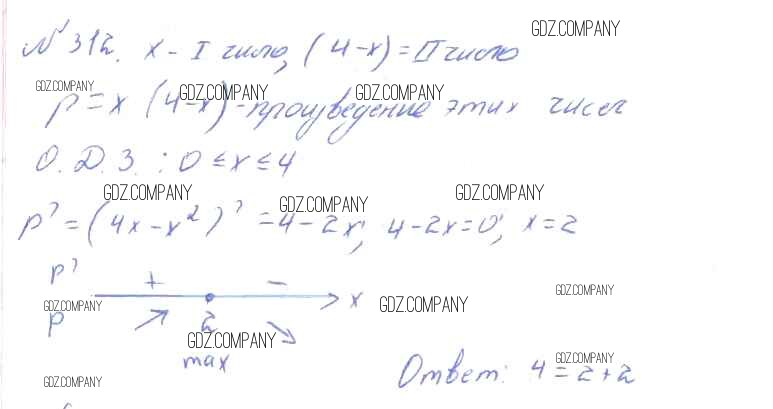 № 312. x - I число, (4-x) = II число
GDZ.COMPANY
GDZ.COMPANY GDZ.COMPANY GDZ.COMPANY
p = x (4-x) - произведение этих чисел
О.Д.З. : 0 ≤ x ≤ 4
GDZ.COMPANY GDZ.COMPANY GDZ.COMPANY
p' = (4x - x²)' = 4 - 2x; 4-2x=0; x=2
p' + -
GDZ.COMPANY x GDZ.COMPANY GDZ.COMPANY
p 2
GDZ.COMPANY
max
GDZ.COMPANY
Ответ: 4 = 2+2
GDZ.COMPANY